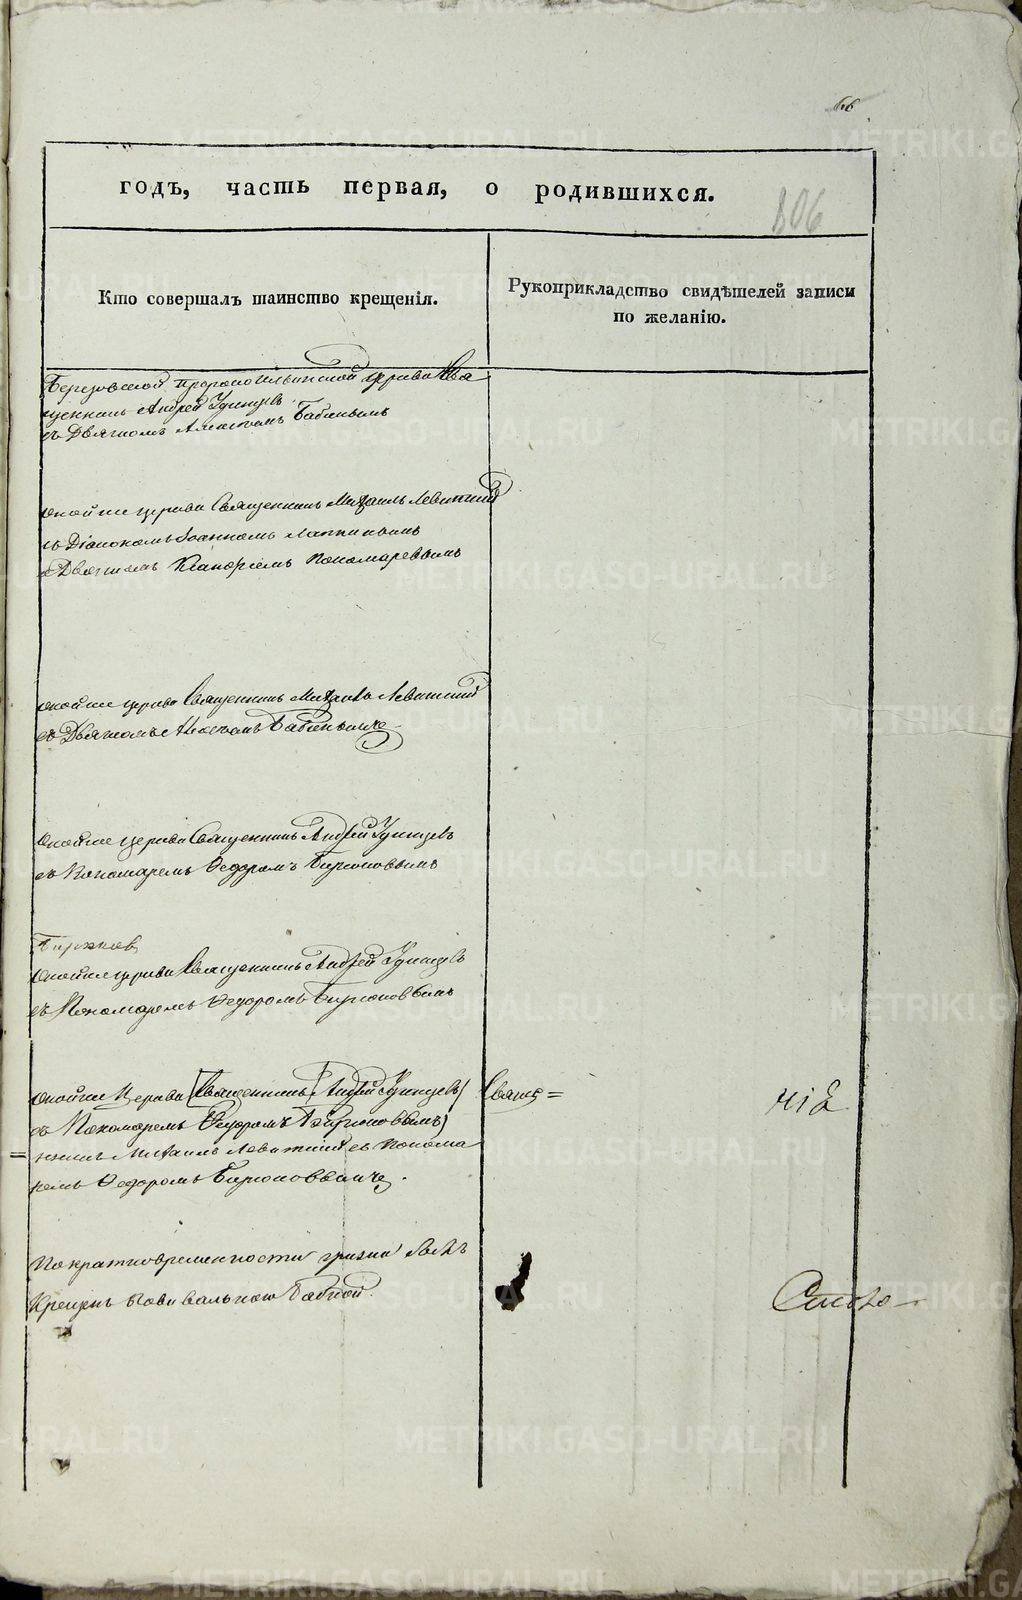 66
годъ, часть первая, о родившихся.
806
Кто совершалъ таинство крещенія.
Рукоприкладство свидѣтелей записи
по желанію.
Березовской пророко Ильинской церкви Свя
щенникъ Андрей Удинцевъ
съ Дьячкомъ Бабинымъ
оной же церкви Священникъ Михаилъ Левитскій
съ Діакономъ Іоанномъ Лаптинымъ
Дьячкомъ Пономаревымъ
оной же церкви Священникъ Михаилъ Левитскій
съ Дьячкомъ Бабинымъ
оной же церкви Священникъ Андрей Удинцевъ
съ Пономаремъ Ѳедоромъ Бирюковымъ
оной же церкви Священникъ Андрей Удинцевъ
съ Пономаремъ Ѳедоромъ Бирюковымъ
оной же Церкви Священникъ Андрей Удинцевъ Свяще=
съ Пономаремъ Ѳедоромъ Бирюковымъ
=нникъ Михаилъ Левитскій съ Понома
ремъ Ѳедоромъ Бирюковымъ.
По кратковременности жизни былъ
Крещенъ Повивальною Бабкой.
METRIKI.GASO-URAL.RU